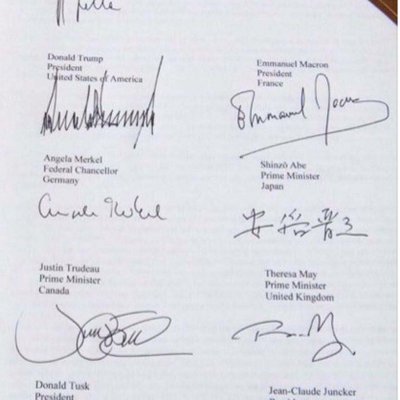 Donald Trump
President
United States of America
Emmanuel Macron
President
France
Emmanuel Macron
Angela Merkel
Federal Chancellor
Germany
Angela Merkel
Shinzō Abe
Prime Minister
Japan
安倍晋三
Justin Trudeau
Prime Minister
Canada
Theresa May
Prime Minister
United Kingdom
Donald Tusk
President
Jean-Claude Juncker